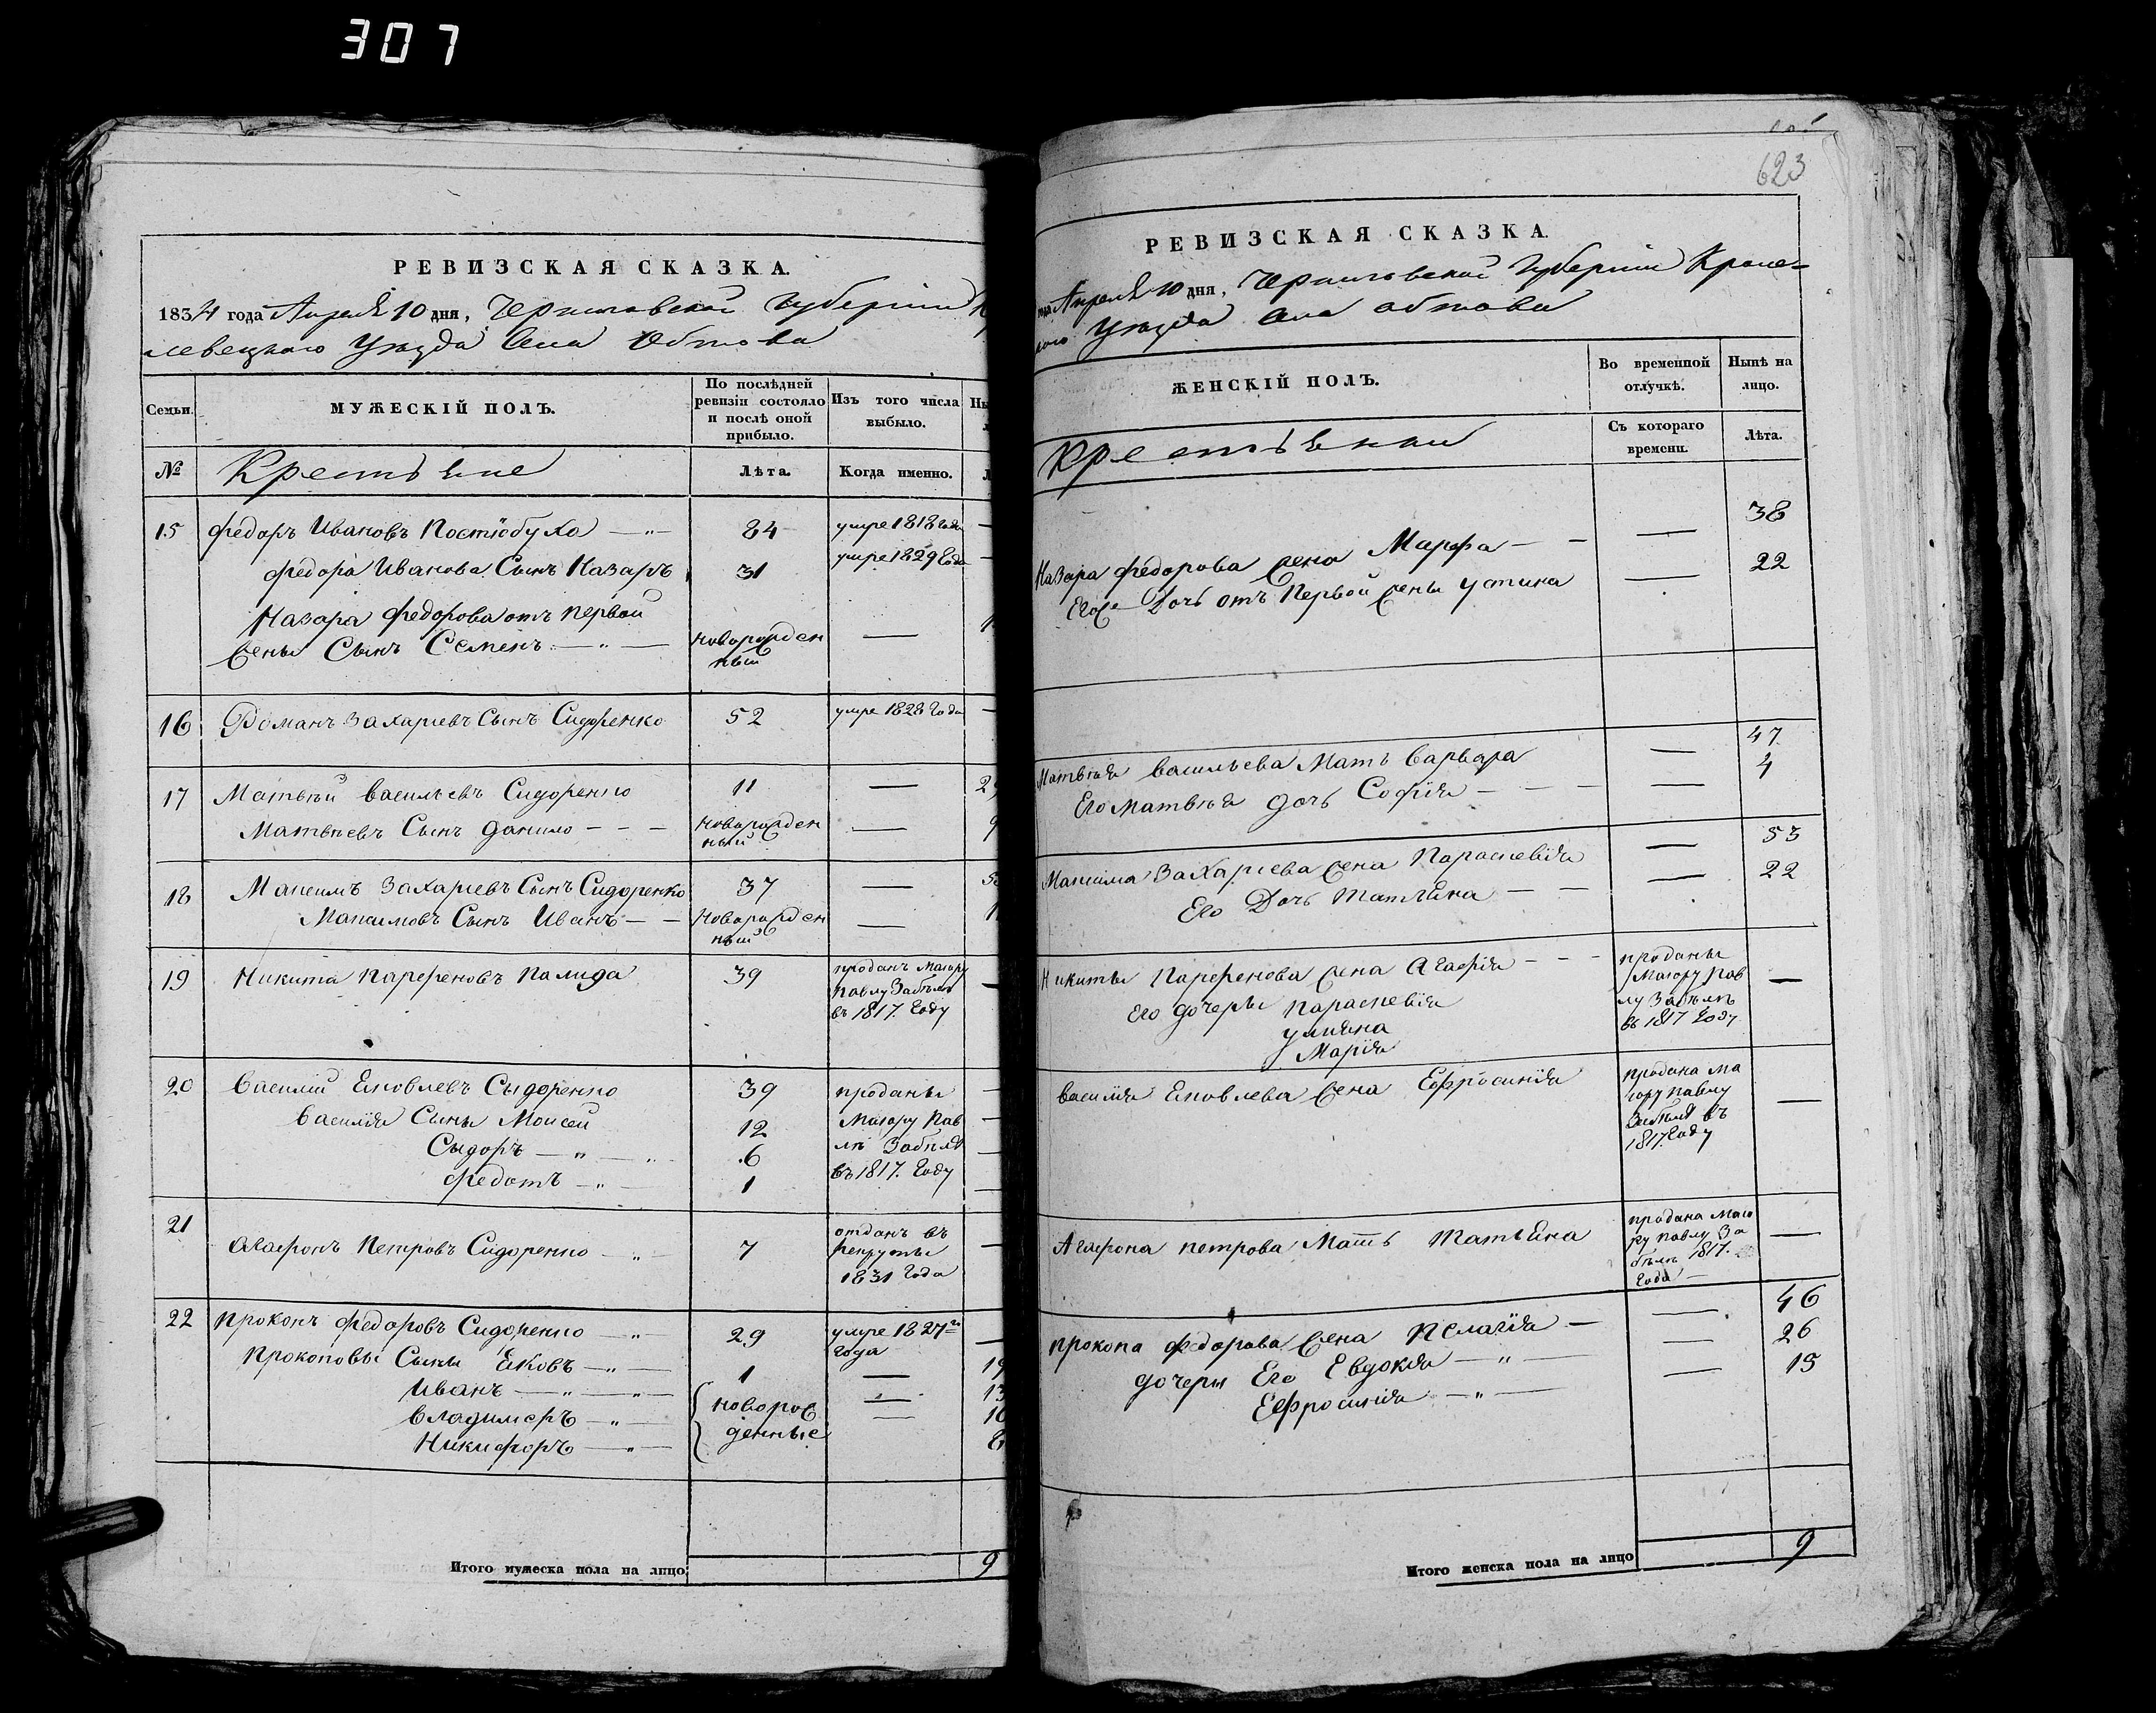 307
РЕВИЗСКАЯ СКАЗКА.
1834 года Апреля 10 дня, Черниговской Губернии
левецкаго Уезда Села Обтова
Семьи.
МУЖЕСКІЙ ПОЛЪ.
По послѣдней ревизіи состояло и послѣ оной прибыло.
Изъ того числа выбыло.
№
Крестьяне
Лѣта.
Когда именно.
15 Федоръ Ивановъ Постюбуха — „ — 84 умре 1818 Года —
Федора Иванова Сынъ Назаръ 31 умре 1829 Года —
Назара Федорова отъ Первой
жены Сынъ Семенъ — „ — Новорожден
ный —
16 Романъ Захариевъ Сынъ Сидоренко 52 умре 1828 Года —
17 Матвѣй Васильевъ Сидоренко 11 —
Матвѣевъ Сынъ Данило — — — Новорожден
ный —
18 Максимъ Захариевъ Сынъ Сидоренко 37 —
Максимовъ Сынъ Иванъ — — Новорожден
ный —
19 Никита Парфеновъ Палида 39 проданъ Маіору
Павлу Забѣлѣ
въ 1817. Году —
20 Василий Яковлевъ Сыдоренко 39 проданы —
Василія Сыны Моисей 12 Маіору Пав —
Сыдоръ — „ — „ 6 лу Забѣлѣ —
Федотъ — „ — 1 въ 1817. Году —
21 Агафонъ Петровъ Сидоренко — „ — 7 отданъ въ
рекруты
1831 Года —
22 Прокопъ Федоровъ Сидоренко — „ — 29 умре 1827го
Года —
Прокоповы Сыны Яковъ — „ — 1 — 19
Иванъ — „ — „ — новорож — 13
Владимеръ — „ — денные —
Никифоръ — „ —
Итого мужеска пола на лицо 9
623
РЕВИЗСКАЯ СКАЗКА.
года Апреля 10 дня, Черниговской Губернии Кроле-
Уезда Села Обтова
ЖЕНСКІЙ ПОЛЪ.
Во временной отлучкѣ.
Нынѣ на лицо.
Крестьянки
Съ котораго времени.
Лѣта.
Назара Федорова жена Марфа — — — 38
Его же Дочь отъ Первой жены Устина — 22
Матвѣя Васильева Мать Варвара — 47
Его Матвѣя дочь Софія — — — — 4
Максима Захариева жена Параскевія — 53
Его Дочь Татіяна — — — 22
Никиты Парфенова жена Агафія — — — проданы
Его дочеры Параскевія Маіору Пав —
Улияна лу Забѣлѣ
Марія въ 1817 Году
Василія Яковлева жена Ефросинія продана Ма
іору Павлу
Забѣлѣ въ
1817. Году —
Агафона Петрова Мать Татіяна продана Маіо
ру Павлу За
бѣлѣ 1817.
Года — —
Прокопа Федорова жена Пелагія — — 46
дочеры Его Евдокія — „ — — 26
Ефросинія — „ — — 15
Итого женска пола на лицо 9